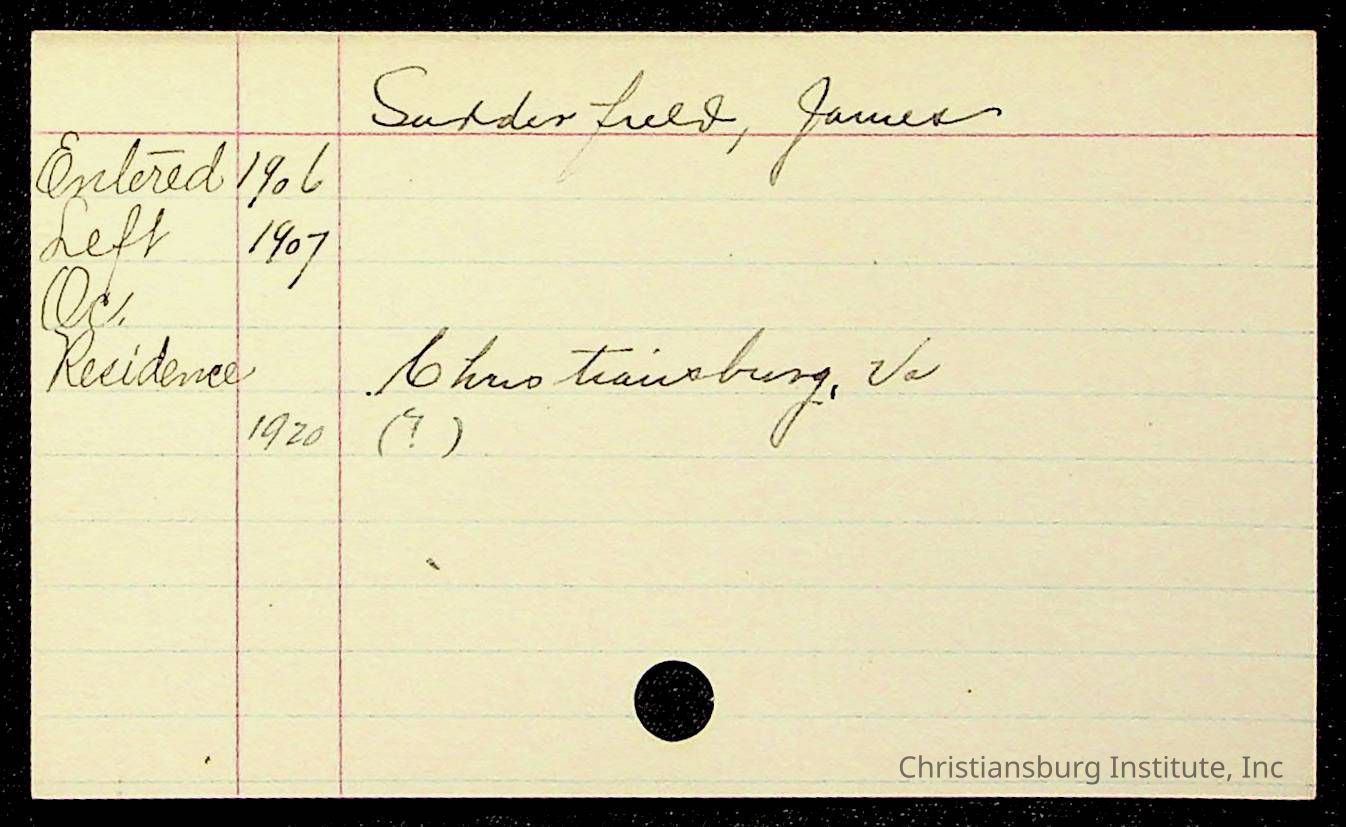 Sudderfield, James
Entered 1906
Left 1907
Oc.
Residence Christiansburg, Va
1920 (?)
Christiansburg Institute, Inc